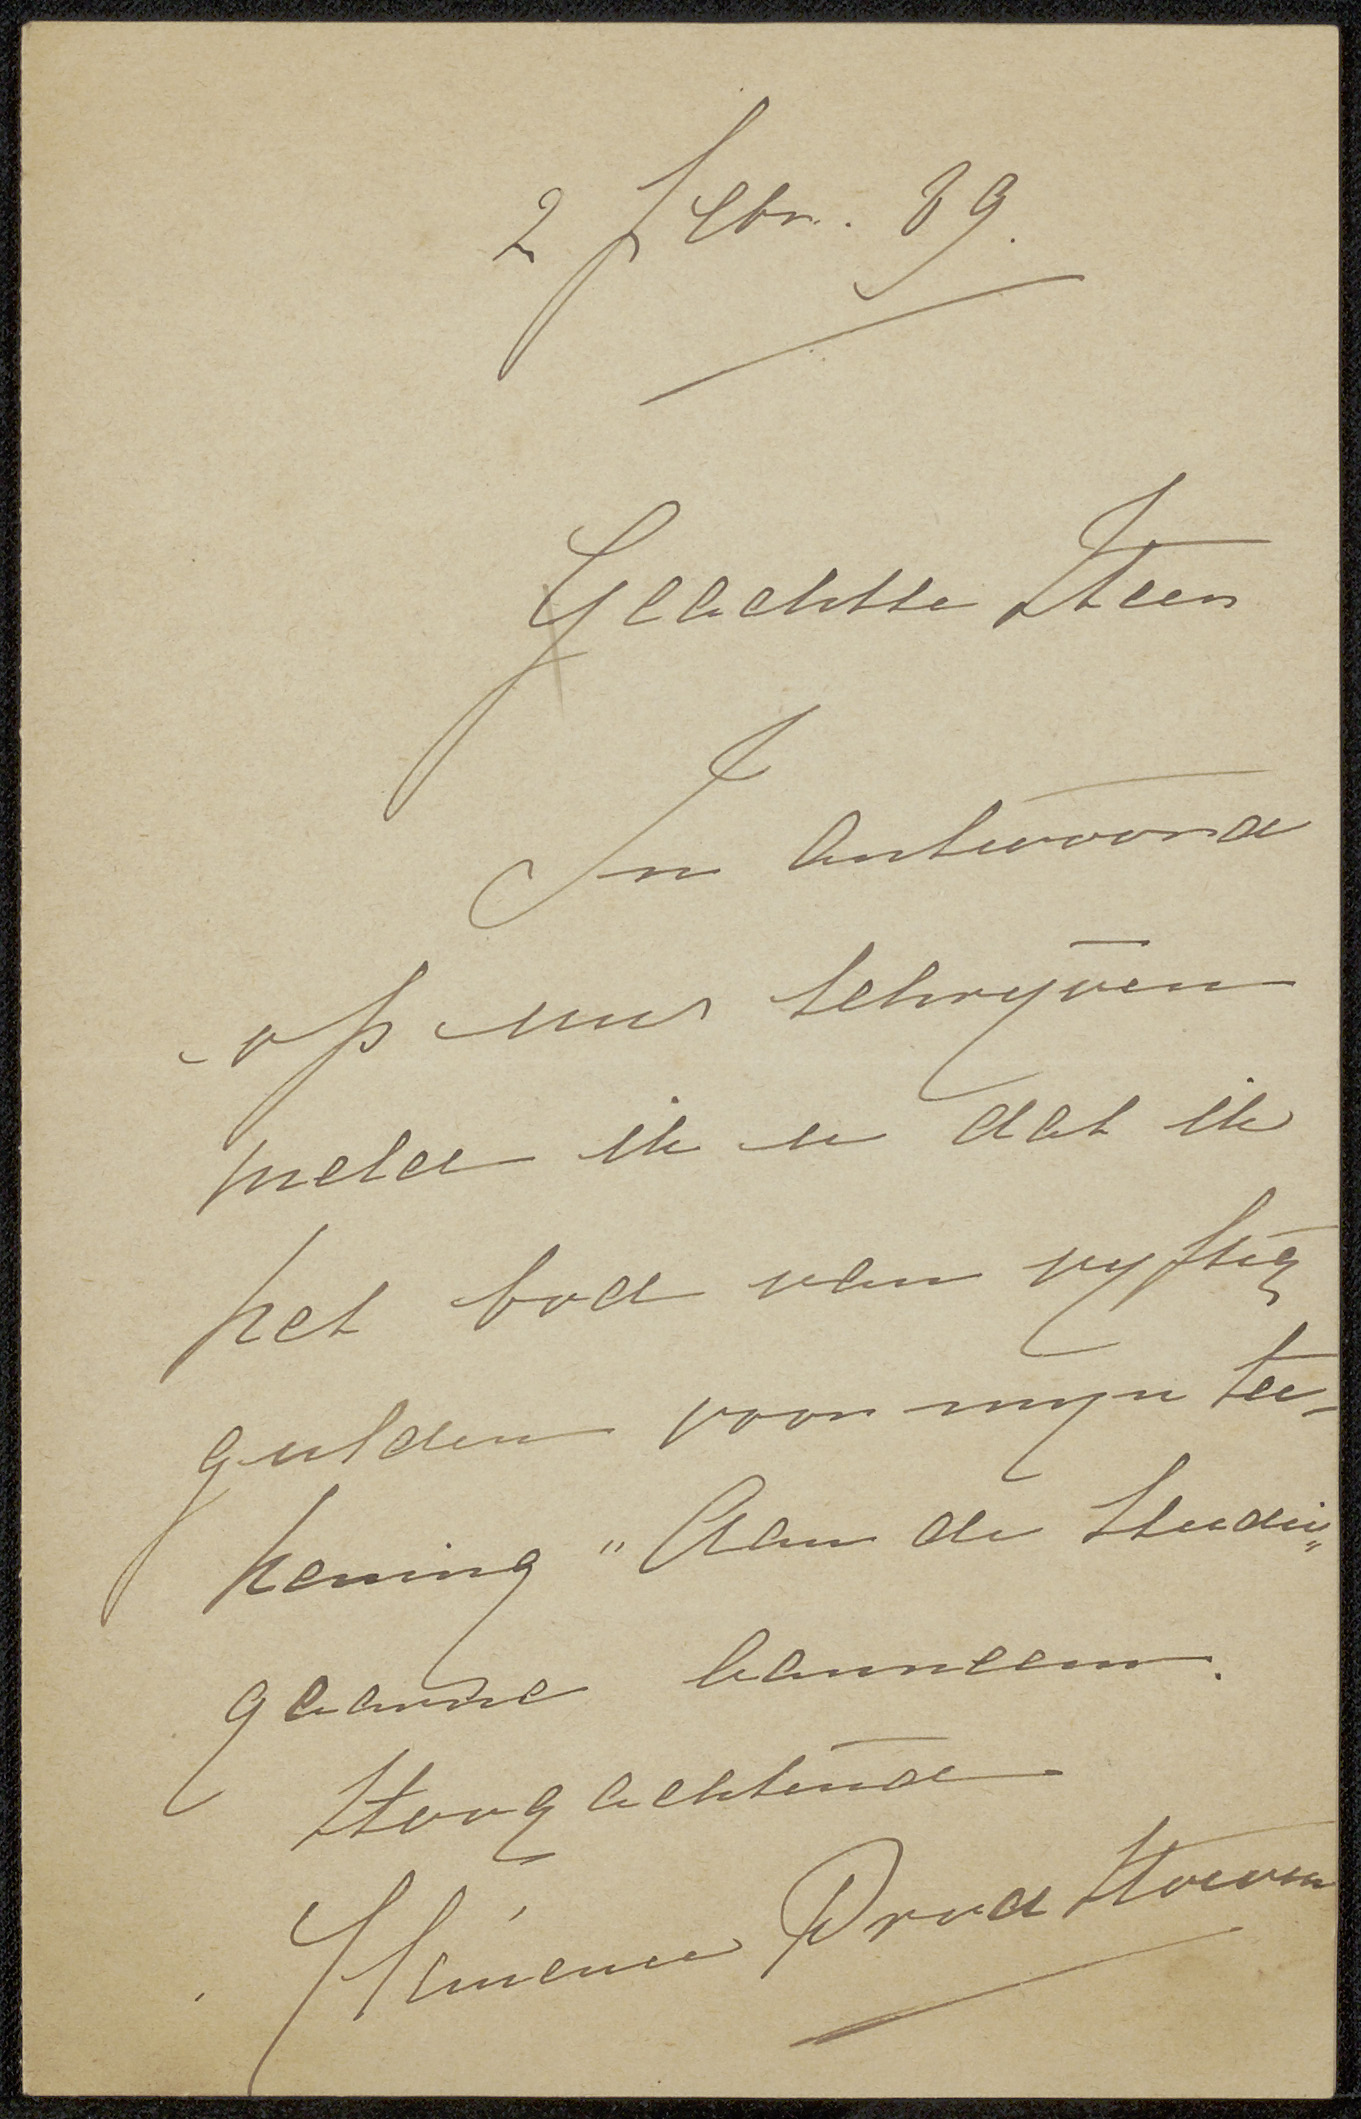 2 Febr. 89.
Geachte Heer
In antwoord
op uw schrijven
meld ik u dat ik
het bod van vyftig
gulden voor mijn tee-
kening "Aan de studie"
gaarne aanneem.
Hoogachtend
Prood Hoeven